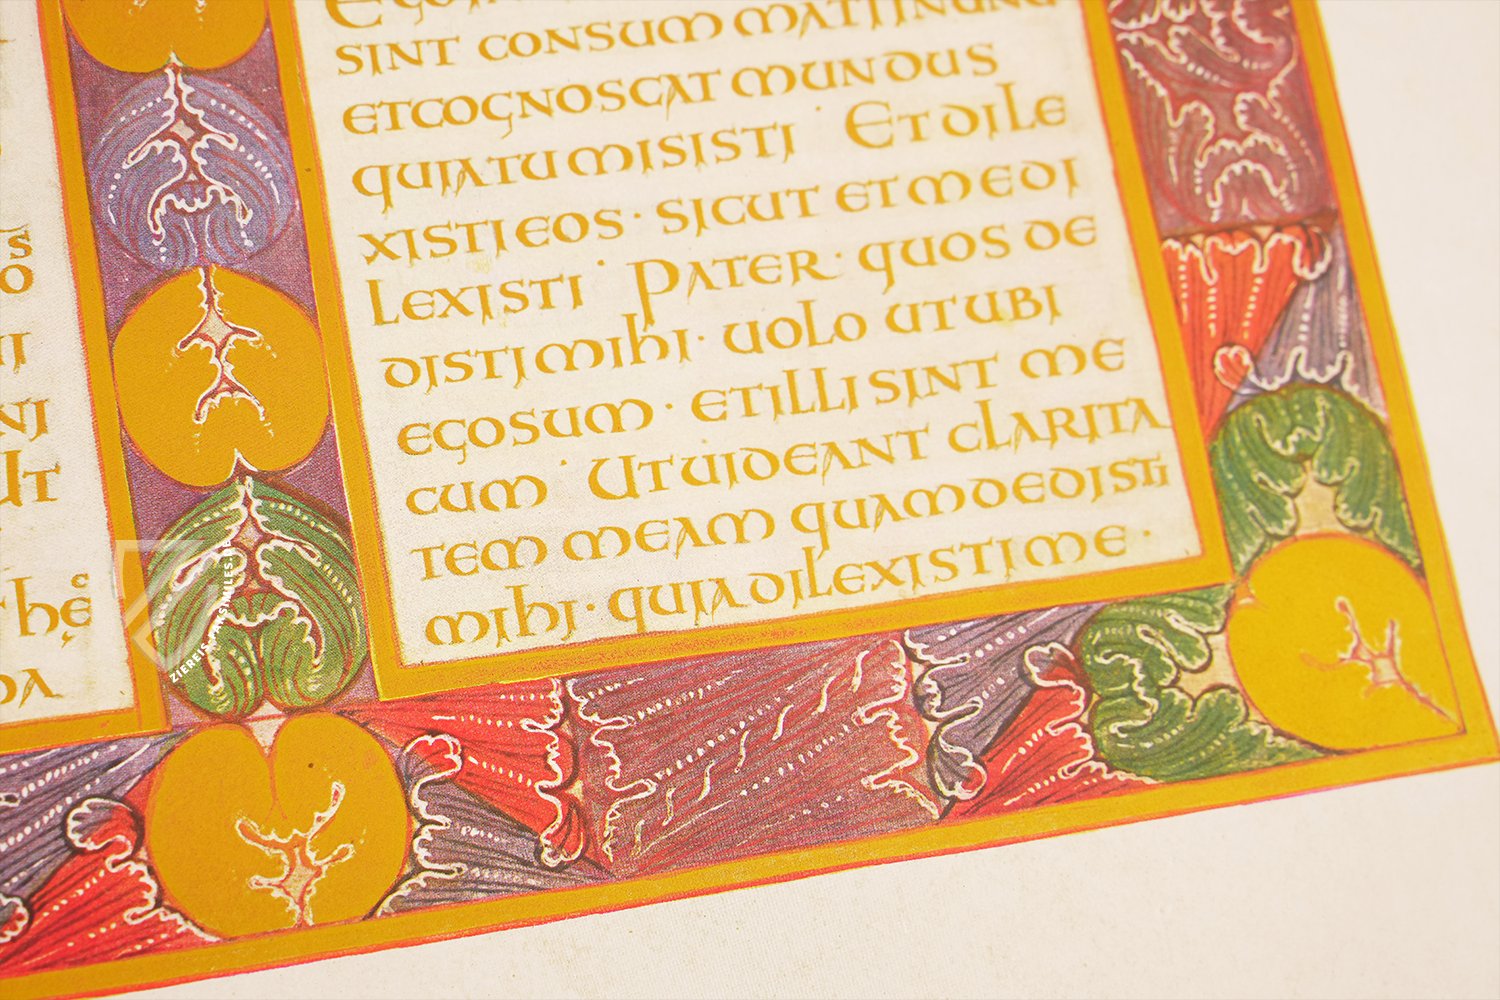 SINT CONSUMMATI IN UNUM
ETCOGNOSCAT MUNDUS
QUIATUMISISTI · ET DILE
XISTI EOS · SICUT ET ME DI
LEXISTI · PATER · QUOS DE
DISTI MIHI · UOLO UT UBI
EGO SUM · ET ILLI SINT ME
CUM · UT UIDEANT CLARITA
TEM MEAM QUAM DEDISTI
MIHI · QUIA DILEXISTI ME ·
S
O
NI
UT
hę
DA
ZIEREIS FACSIMILES